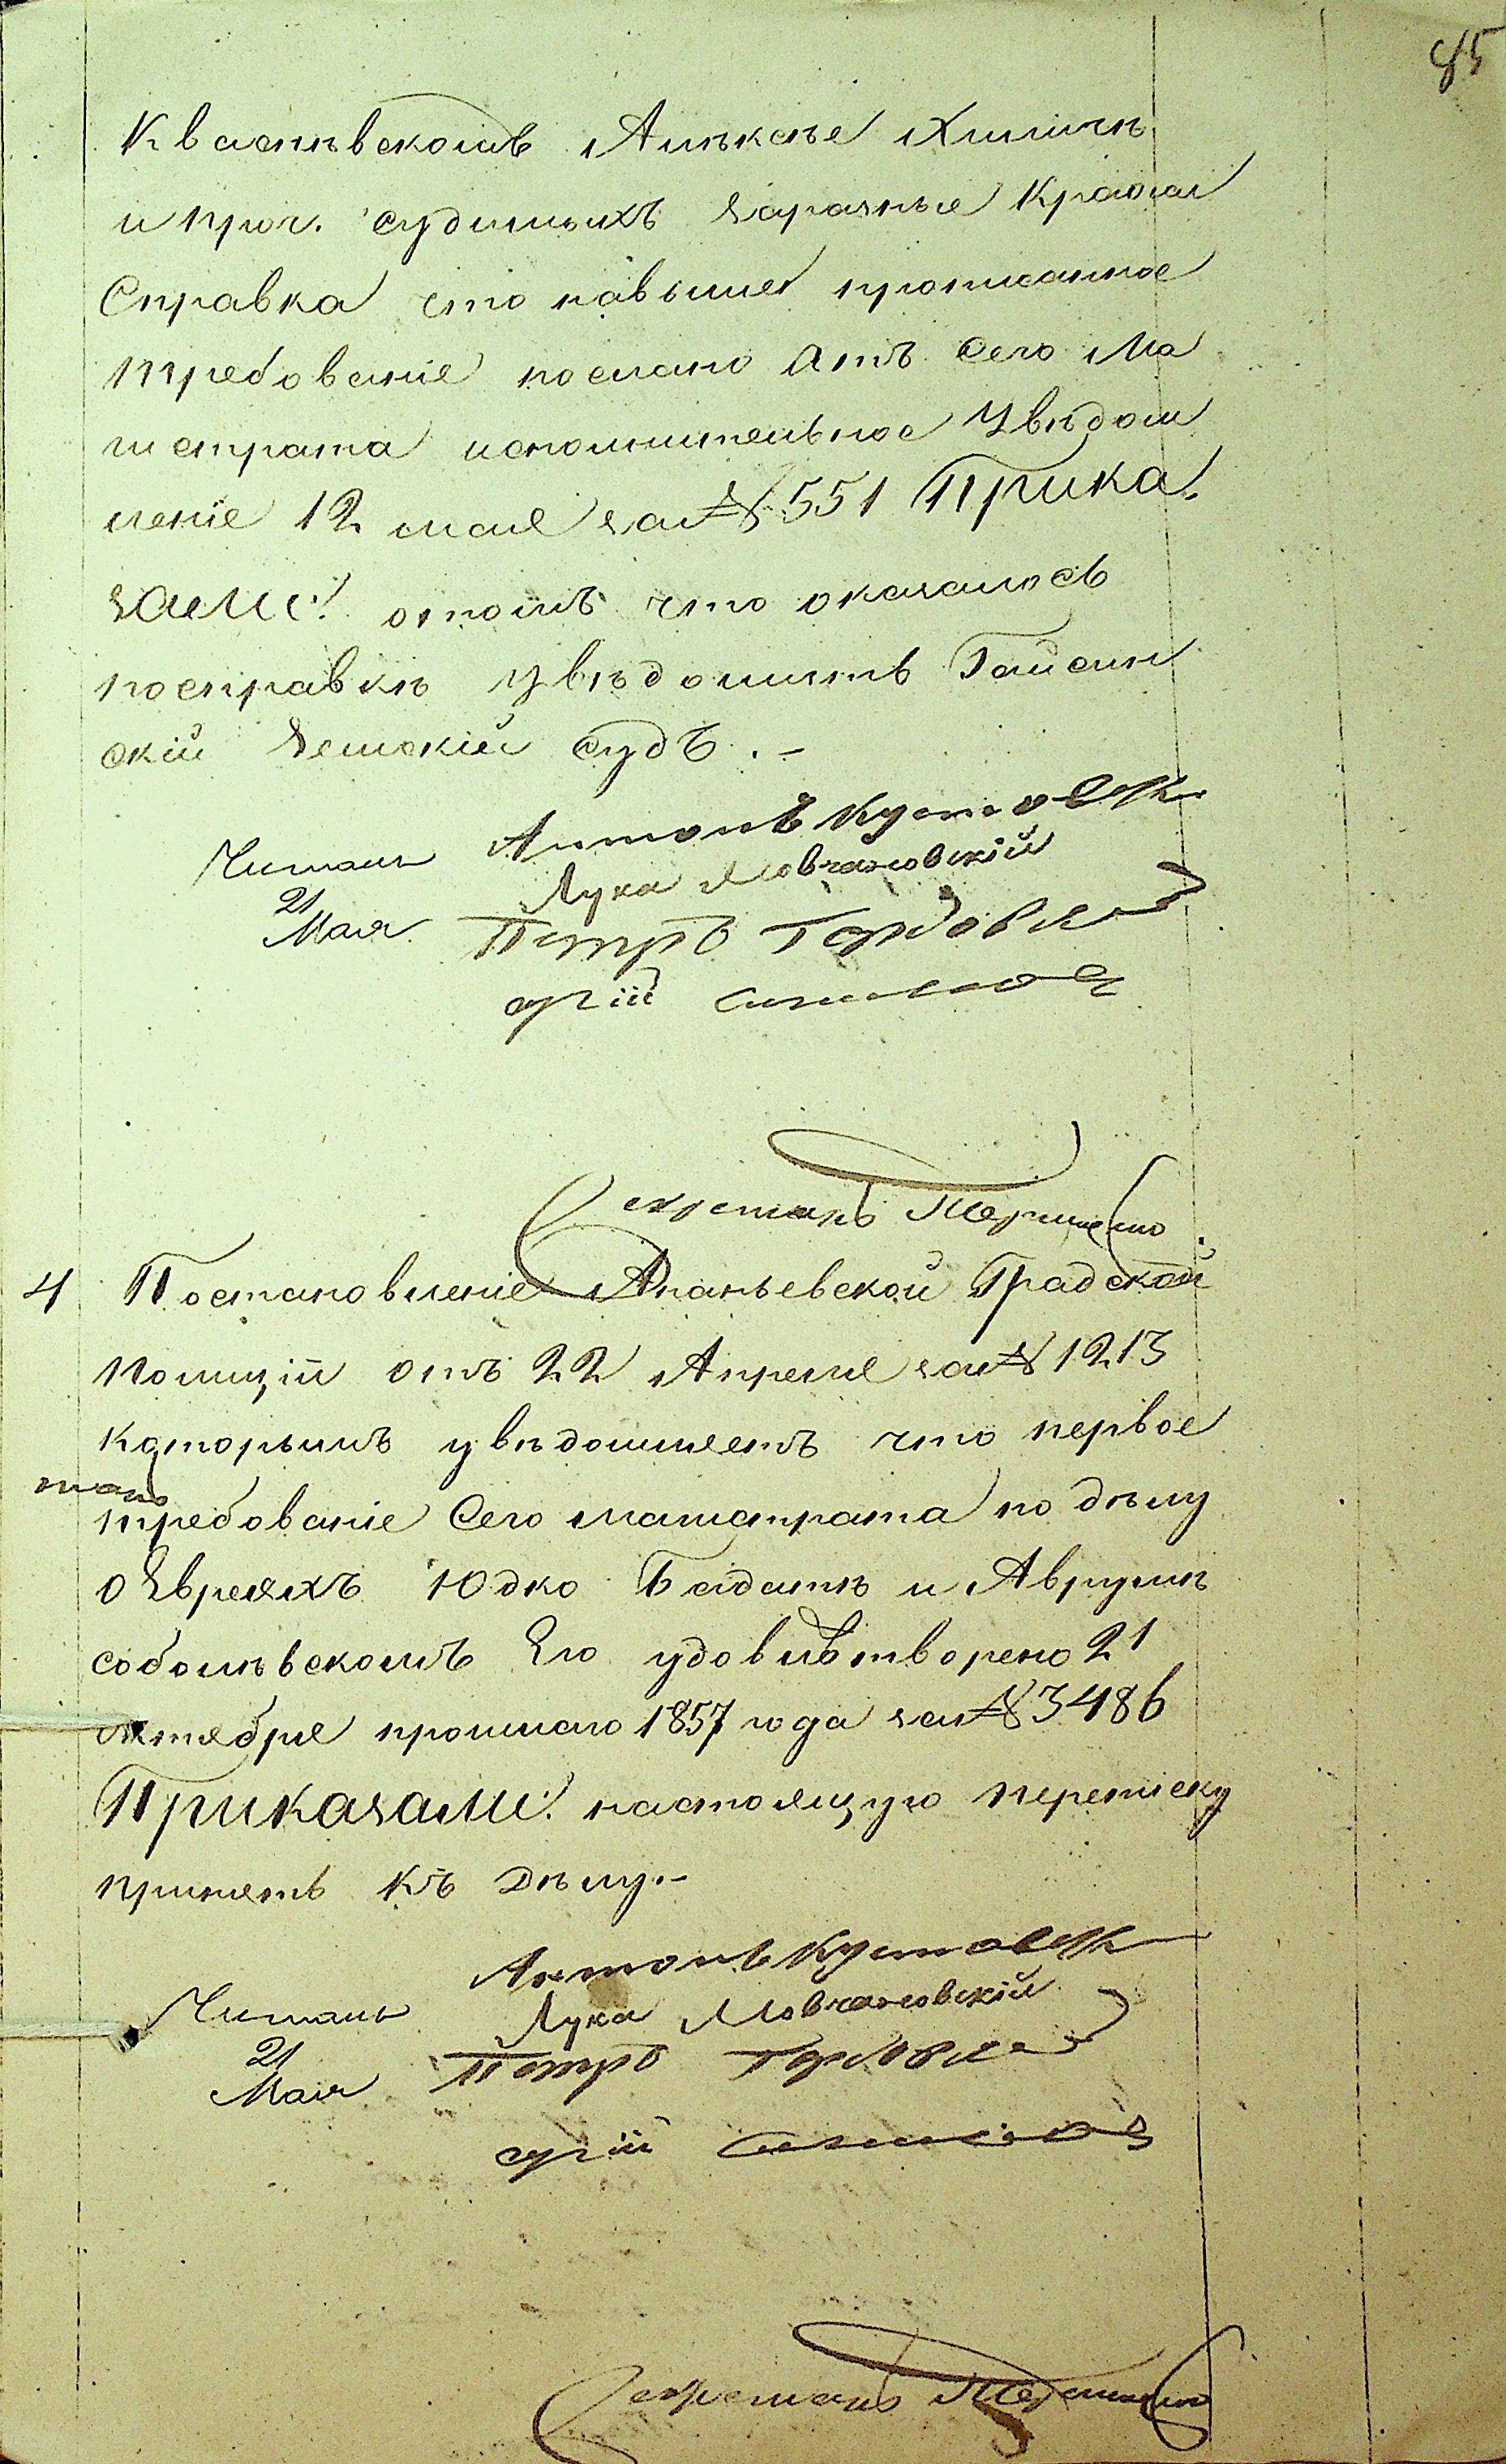 85
Квасневскомъ Алексѣе Химичѣ
и проч. судимыхъ заразные Кражи
Справка что навыше прописанное
требованіе послано отъ Сего Ма
гистрата исполнительное Увѣдом
леніе 12 мая за № 551 Прика
зали: отомъ что оказалось
посправкѣ увѣдомить Гайсин
скій Земскій судъ.-
Антонъ Кустовскі
Читалъ
Лука Мовчановскій
21
Мая
Петръ
Секретарь
4 Постановленіе Ананьевской Градской
Полиціи отъ 22 Апреля за № 1213
которымъ увѣдомляетъ что первое
требованіе Сего магистрата по дѣлу
о Евреяхъ Юдко Байдатѣ и Аврумѣ
соболѣвскомъ Ею удовлѣтворено 21
октября прошлаго 1857 года за № 3486
Приказали: настоящую переписку
принять къ Дѣлу.-
Антонъ Кустовскі
Читалъ
Лука Мовчановскій
21
Мая
Петръ
Секретарь